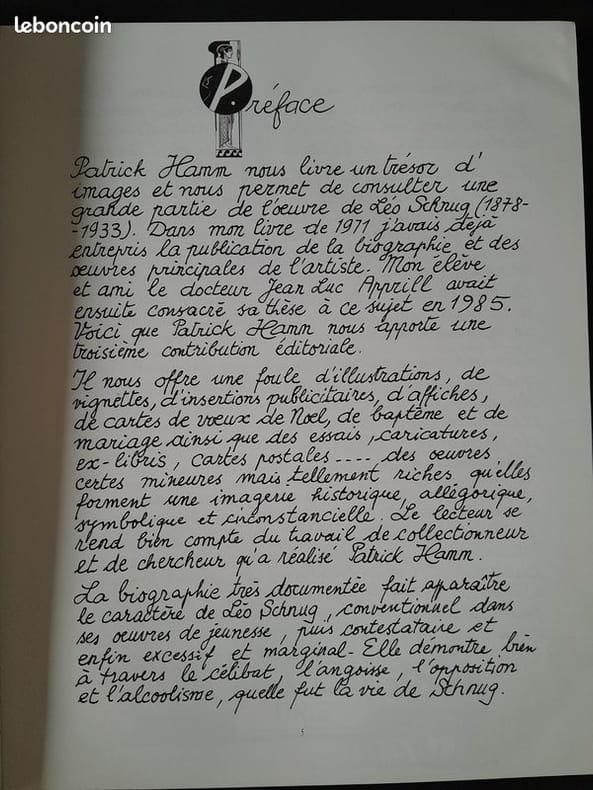 leboncoin
Préface
Patrick Hamm nous livre un trésor d'
images et nous permet de consulter une
grande partie de l'œuvre de Léo Schnug (1878-
-1933). Dans mon livre de 1971 j'avais déjà
entrepris la publication de la biographie et des
œuvres principales de l'artiste. Mon élève
et ami le docteur Jean Luc Apprill avait
ensuite consacré sa thèse à ce sujet en 1985.
Voici que Patrick Hamm nous apporte une
troisième contribution éditoriale.
Il nous offre une foule d'illustrations, de
vignettes, d'insertions publicitaires, d'affiches,
de cartes de vœux de Noel, de baptême et de
mariage ainsi que des essais, caricatures,
ex-libris, cartes postales .... des oeuvres
certes mineures mais tellement riches qu'elles
forment une imagerie historique, allégorique,
symbolique et circonstancielle. Le lecteur se
rend bien compte du travail de collectionneur
et de chercheur qu'a réalisé Patrick Hamm.
La biographie très documentée fait apparaître
le caractère de Léo Schnug, conventionnel dans
ses oeuvres de jeunesse, puis contestataire et
enfin excessif et marginal- Elle démontre bien
à travers le célibat, l'angoisse, l'opposition
et l'alcoolisme, quelle fut la vie de Schnug.
5